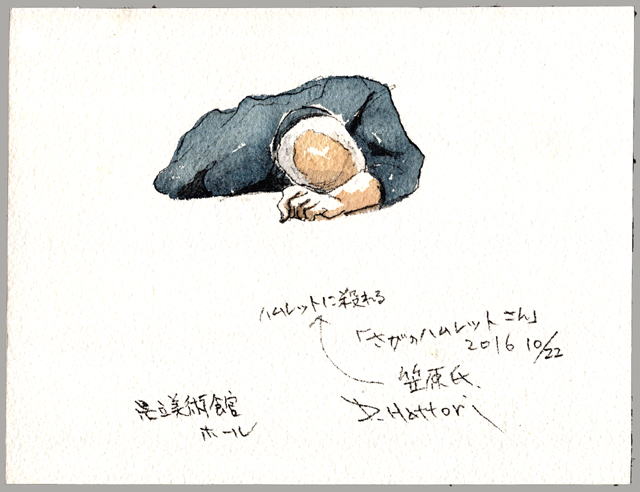 ハムレットに殺れる
「さがのハムレットさん」
2016 10/22
笠原氏.
D.Hattori
県立美術館
ホール